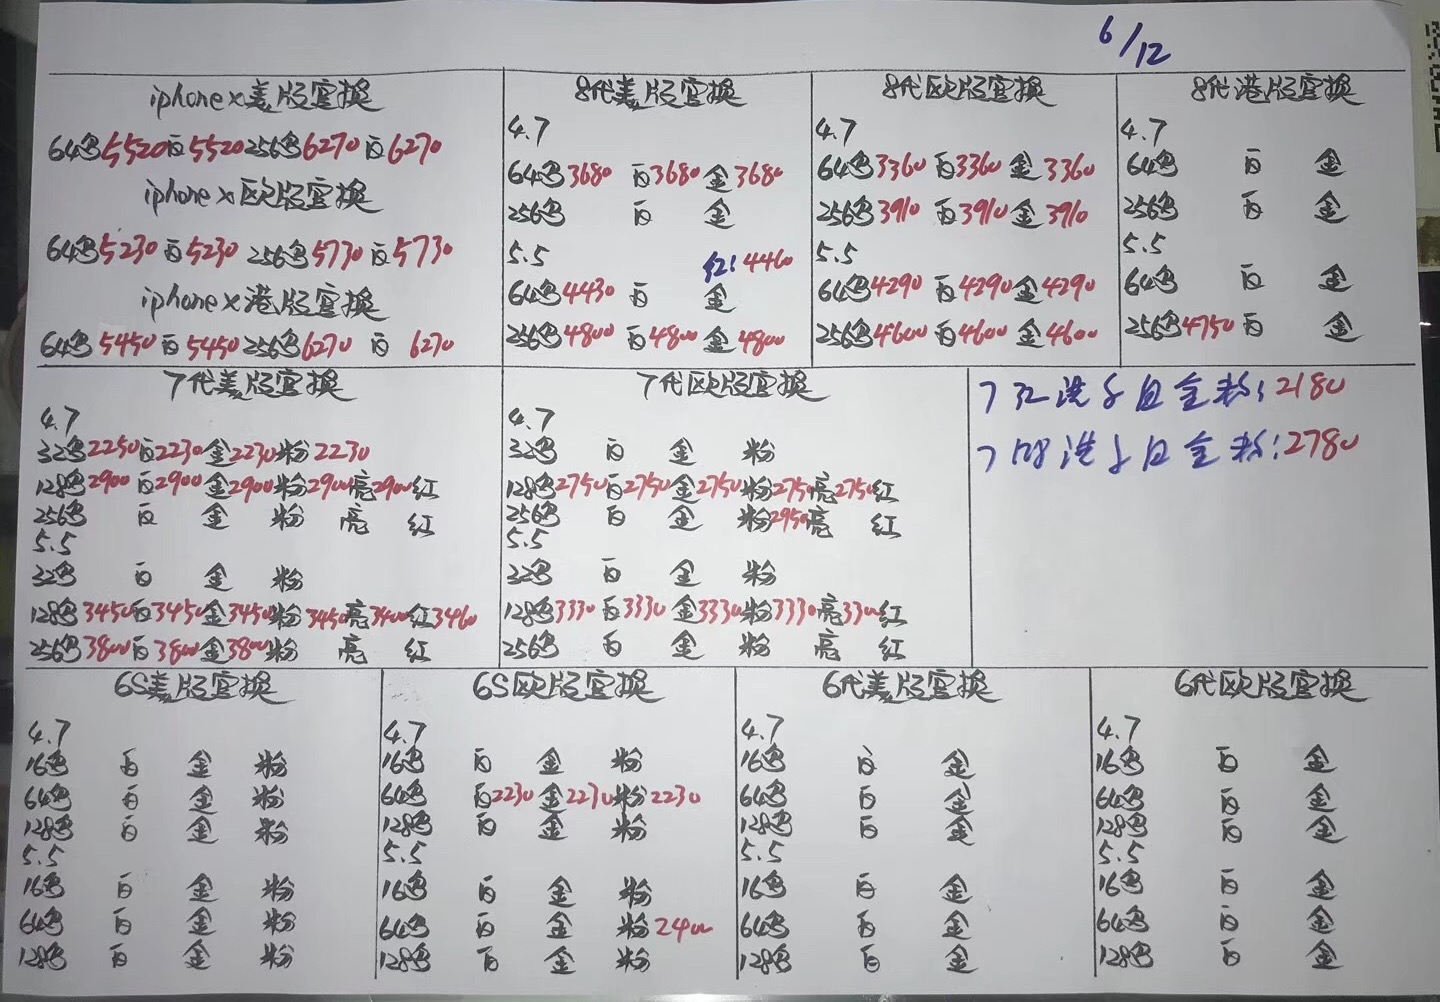 6/12
iphone x美版官换
64黑5520白5520 256黑6270白6270
iphone x欧版官换
64黑5230白5230 256黑5730白5730
iphone x港版官换
64黑5450白5450 256黑6270白6270
8代美版官换
4.7
64黑3680 白3680 金3680
256黑 白 金
5.5 红:4460
64黑4430 白 金
256黑4800 白4800 金4800
8代欧版官换
4.7
64黑3360 白3360 金3360
256黑3910 白3910 金3910
5.5
64黑4290 白4290 金4290
256黑4600 白4600 金4600
8代港版官换
4.7
64黑 白 金
256黑 白 金
5.5
64黑 白 金
256黑4750 白 金
7代美版官换
4.7
32黑2250白2230金2230粉2230
128黑2900白2900金2900粉2900亮2900红
256黑 白 金 粉 亮 红
5.5
32黑 白 金 粉
128黑3450白3450金3450粉3450亮3400红3460
256黑3800白3800金3800粉 亮 红
7代欧版官换
4.7
32黑 白 金 粉
128黑2750白2750金2750粉2750亮2750红
256黑 白 金 粉2950亮 红
5.5
32黑 白 金 粉
128黑3330白3330金3330粉3330亮3300红
256黑 白 金 粉 亮 红
7 32 港 白 金 粉:2180
7 128 港 白 金 粉:2780
6S美版官换
4.7
16黑 白 金 粉
64黑 白 金 粉
128黑 白 金 粉
5.5
16黑 白 金 粉
64黑 白 金 粉
128黑 白 金 粉
6S欧版官换
4.7
16黑 白 金 粉
64黑 白2230金2230粉2230
128黑 白 金 粉
5.5
16黑 白 金 粉
64黑 白 金 粉2400
128黑 白 金 粉
6代美版官换
4.7
16黑 白 金
64黑 白 金
128黑 白 金
5.5
16黑 白 金
64黑 白 金
128黑 白 金
6代欧版官换
4.7
16黑 白 金
64黑 白 金
128黑 白 金
5.5
16黑 白 金
64黑 白 金
128黑 白 金